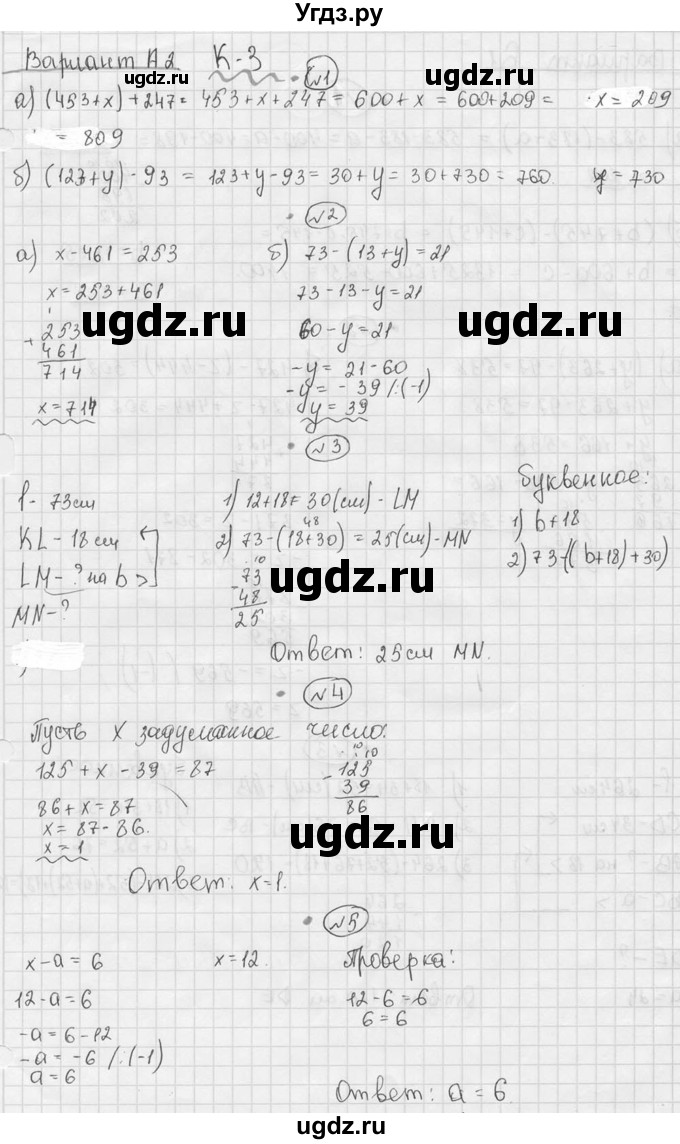 Угдз.ру
Вариант А2 К-3
№1
а) (453+x)+247= 453+x+247= 600+x = 600+209= x = 209
= 809
б) (123+y)-93 = 123+y-93= 30+y= 30+730=760 y=730
№2
а) x-461=253 б) 73-(13+y)=21
x=253+461 73-13-y=21
253 60-y=21
+ 461 -y= 21-60
714 -y= -39 /:(-1)
x=714 y=39
№3
l- 73см 1) 12+18= 30(см)-LM буквенное:
KL-18см 2) 73-(18+30)=25(см)-MN 1) b+18
48
LM-? на b > 2) 73-((b+18)+30)
MN-?
10
- 73
48
25
Ответ: 25см MN.
№4
Пусть x задуманное число.
125+x-39=87
10 10
- 125
39
86
86+x=87
x=87-86.
x=1
Ответ: x=1.
№5
x-a=6 x=12. Проверка:
12-a=6 12-6=6
6=6
-a=6-12
-a=-6 /:(-1)
a=6
Ответ: a=6.
ugdz.ru
ugdz.ru
ugdz.ru
ugdz.ru
ugdz.ru
ugdz.ru
ugdz.ru
ugdz.ru